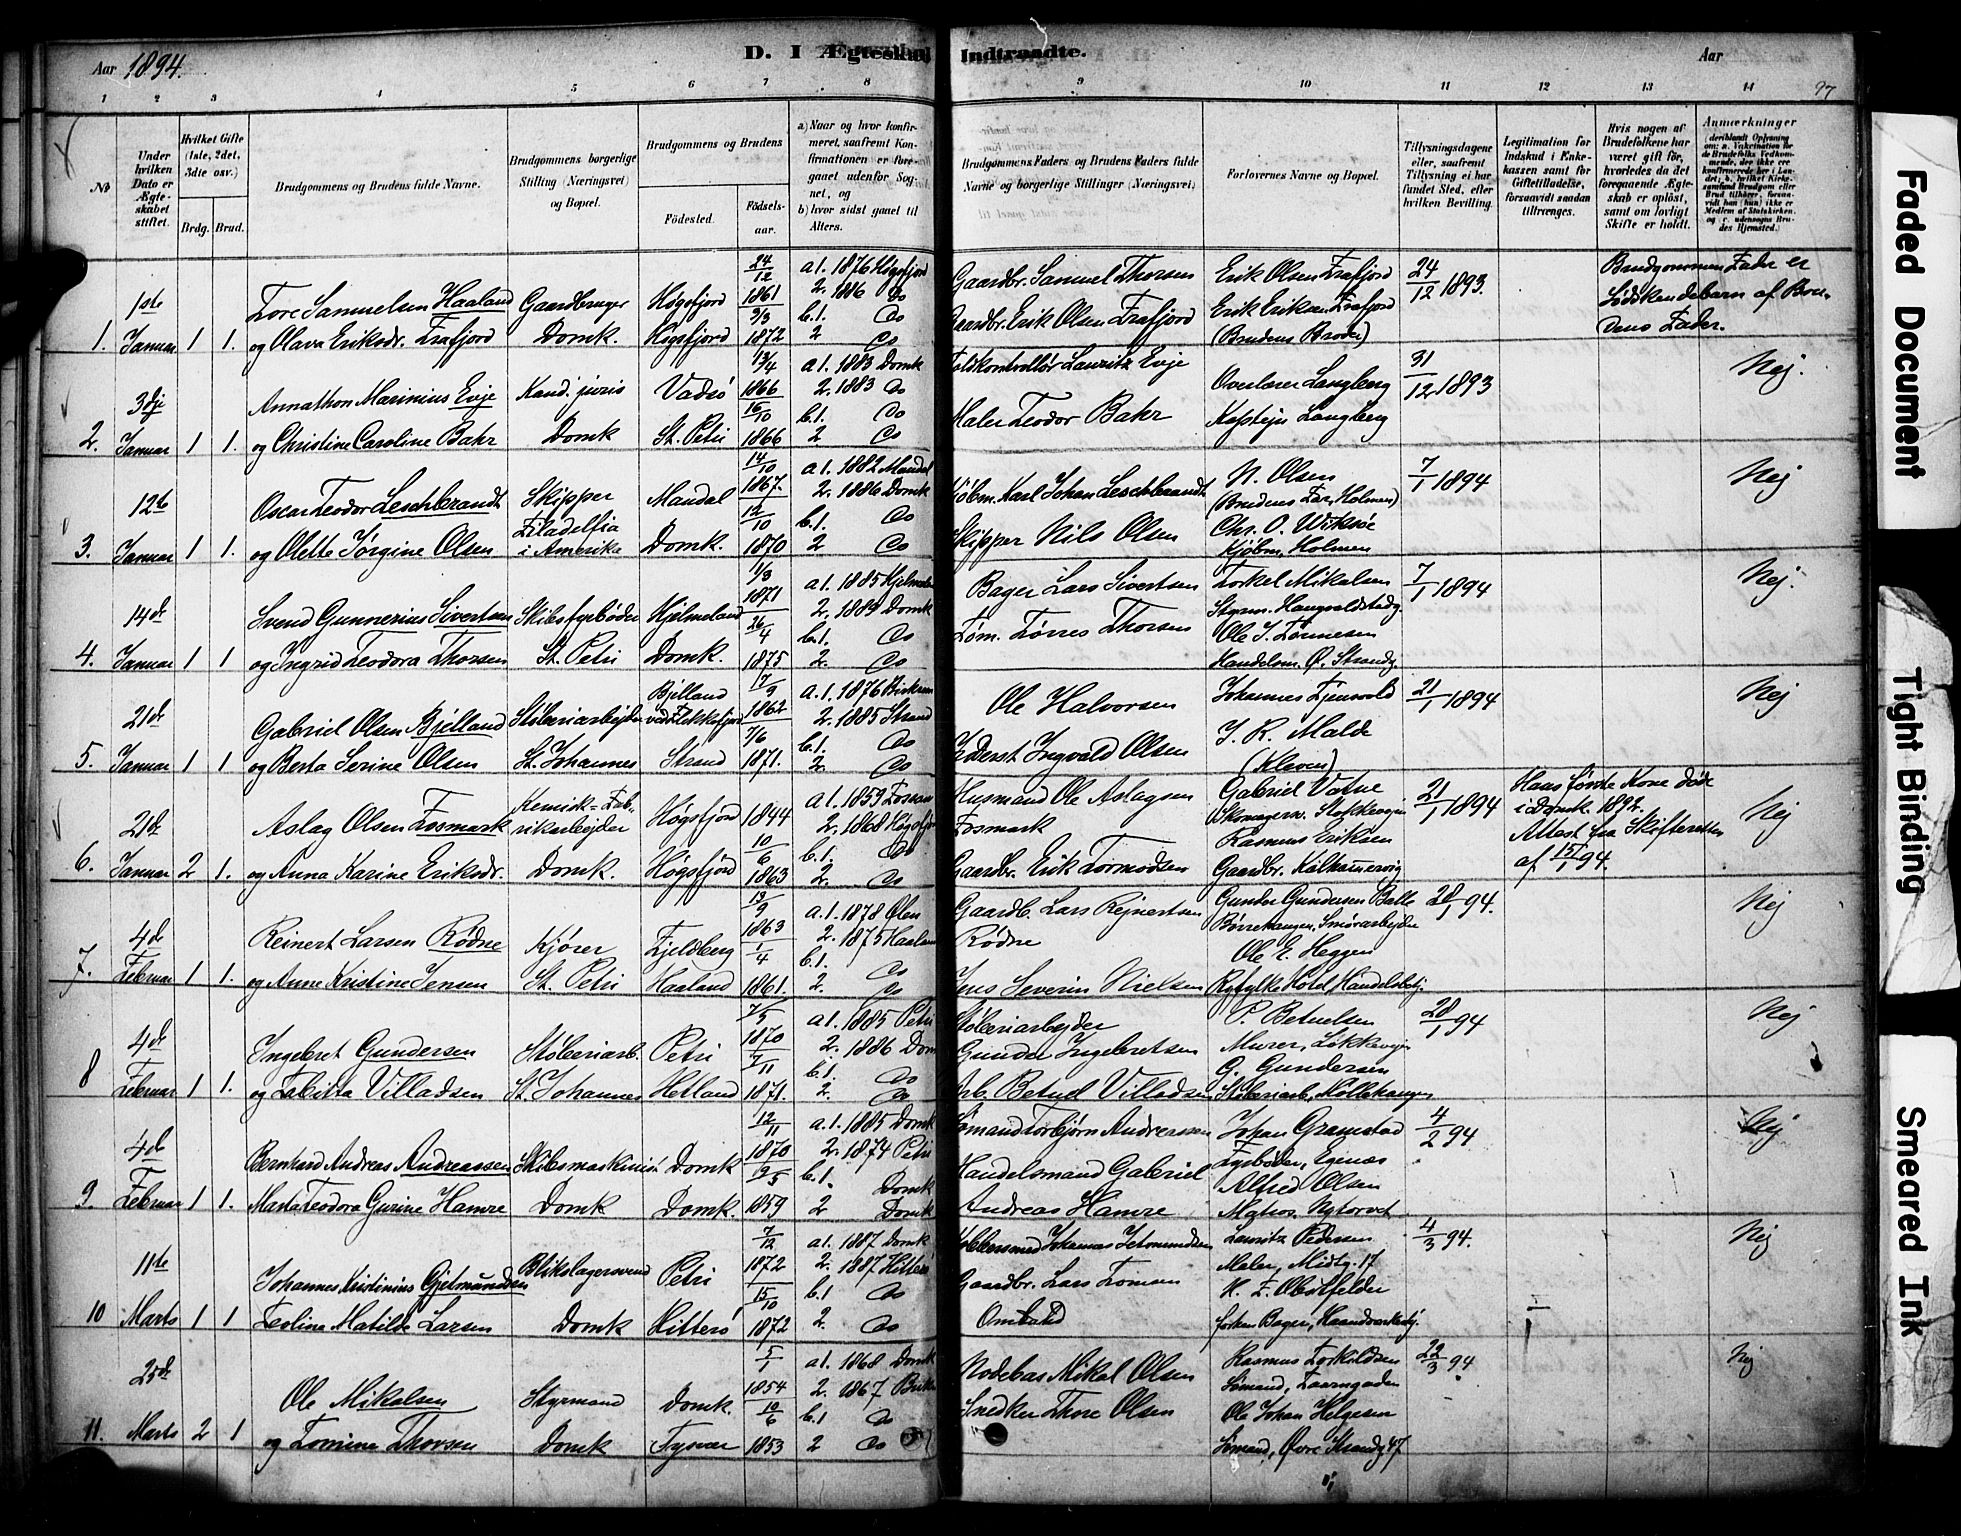 Aar 1894.
D. I Ægteskab Indtraadte.
Aar
97
1 2 3 4 5 6 7 8 9 10 11 12 13 14
No
Under hvilken Dato er Ægteskabet stiftet.
Hvilket Gifte (1ste, 2det, 3dte osv.)
Brdg. Brud.
Brudgommens og Brudens fulde Navne.
Brudgommens borgerlige Stilling (Næringsvei) og Bopæl.
Brudgommens og Brudens
Födested.
Födselsaar.
a) Naar og hvor konfirmeret, saafremt Konfirmationen er foregaaet udenfor Sognet, og
b) hvor sidst gaaet til Alters.
Brudgommens Faders og Brudens Faders fulde Navne og borgerlige Stillinger (Næringsvei)
Forlovernes Navne og Bopæl.
Tillysningsdagene eller, saafremt Tillysning ei har fundet Sted, efter hvilken Bevilling.
Legitimation for Indskud i Enkekassen samt for Giftetilladelse, forsaavidt saadan tiltrænges.
Hvis nogen af Brudefolkene har været gift för, hvorledes da det foregaaende Ægteskab er oplöst, samt om lovligt Skifte er holdt.
Anmærkninger
1. 1ste Januar 1 1.
Tore Samuelsen Haaland
og Olava Eriksdr. Frafjord
Gaardbruger
Domk.
Høgsfjord
Høgsfjord
24/12 1861
9/3 1872
a 1. 1876 Høgsfjord
2. 1886 Do
b. 1. Do
2 Do
Gaardbr. Samuel Thorsen
Gaardbr. Erik Olsen Frafjord
Erik Olsen Frafjord
Erik Eriksen Frafjord
(Brudens Broder)
24/12 1893.
Brudgommens Fader er
Sødskendebarn af Brudens Fader.
2. 3dje Januar 1 1.
Annathon Marinius Evje
og Christine Caroline Bahr
Kand. juris
Domk
Vadsø
St. Petri
13/4 1866
16/10 1866
a 1. 1883 Domk
2. 1883 Do
b. 1. Do
2 Do
Toldkontrollør Lauritz Evje
Maler Teodor Bahr
Overlærer Langberg
Kaptejn Langberg
31/12 1893
Nej.
3. 12te Januar 1 1.
Oscar Teodor Leschbrandt
og Olette Jørgine Olsen
Skipper
Filadelfia
i Amerika
Mandal
Domk.
14/10 1867.
12/10 1870
a 1. 1882 Mandal
2. 1886 Domk
b. 1. Do
2 Do
Kjøbm. Karl Johan Leschbrandt
Skipper Nils Olsen
N. Olsen
(Brudens Far, Holmen)
Chr. O. Wiksøe
Kjøbm. Holmen
7/1 1894
Nej
4. 14de Januar 1 1
Svend Gunnerius Sivertsen
og Ingrid Teodora Thorsen
Skibsfyrbøder
St. Petri
Hjelmeland
Domk.
1/3 1871
26/4 1875
a 1. 1885 Hjelmeland
2. 1889 Domk
b. 1. Do
2. Do
Bager Lars Sivertsen
Søm. Tørres Thorsen
Torkel Mikalsen
Ole T. Tønnesen
Handelsm. Ø. Strandg.
7/1 1894
Nej.
5. 21de Januar 1 1
Gabriel Olsen Bjelland
og Berta Serine Olsen
Støberiarbejder
St. Johannes
Bjelland
ved Flekkefjord
Strand
7/9 1862
7/6 1871.
a. 1. 1876
2. 1885 Strand
b. 1. Do
2. Do
Ole Halvorsen
Inderst Ingvald Olsen
Johannes
T. R. Malde
(Kleven)
21/1 1894
Nej
6. 21de Januar 2 1.
Aslag Olsen Fosmark
og Anna Karine Eriksdr.
Kemisk-Fabrikarbejder
Domk.
Høgsfjord
Høgsfjord
1844
10/6 1863
a 1. 1859 Fossan
2. 1868 Høgsfjord
b. 1. Do
2. Do
Husmand Ole Aslagsen
Fosmark
Gaardbr. Erik Tormodsen
Gabriel Vatne
Skomagerm. Stokkevejen
Rasmus Eriksen
Gaardbr. Kalhammervig
21/1 1894
Hans første Kone død
i Domk. 1892.
Attest fra Skifteretten
af 15/1 94.
Nej
7. 4de Februar 1 1.
Reinert Larsen Rødne
og Anne Kristine Jensen
Kjører
St. Petri
Fjeldberg
Haaland
13/9 1863
1/4 1861.
a. 1. 1878 Ølen
2. 1875 Haaland
b. 1. Do
2. Do
Gaardb. Lars Rejnertsen
Rødne
Jens Severin Nielsen
Gunder Gundersen Balle
Ole E. Heggen
Ryfylke Hotel,
28/1 94.
Nej
8 4de Februar 1 1.
Ingebret Gundersen
og Tabitta Villadsen
Støberiarb.
St. Johannes
Petri
Hetland
7/5 1870
7/11 1871.
a 1. 1885 Petri
2. 1886 Domk
b. 1. Do
2. Do
Støberiarbejder
Gunder Ingebretsen
Arb. Betuel Villadsen
P. Betuelsen
Murer, Løkkevejen
G. Gundersen
Støberiarb.
28/1 94
Nej
9. 4de Februar 1 1.
Bernhard Andreas Andreassen
Marta Teodora Gurine Hamre
Skibsmaskinist
Domk
Domk
Domk.
12/11 1870
19/5 1859
a. 1. 1885 Domk
2. 1874 Petri
b. 1. Domk
2 Domk
Sømand Torbjørn Andreassen
Handelsmand Gabriel
Andreas Hamre
Johan Gramstad
Fyrbøder, Egenæs
Alfred Olsen
Matros, Nytorvet
4/2 94
Nej
10 11te Marts 1 1
Johannes Kristinius Gjetmundsen
Teoline Matilde Larsen
Blikslagersvend
Domk
Petri
Hitterø
7/12 1872
15/10 1872
a 1. 1887 Domk
2. 1887 Hitterø
b. 1 Do
2. Do
Kobbersmed Johannes Jetmundsen
Gaardbr. Lars
Lauritz Pedersen
Maler, Midtg. 17
H. F. Obstfelder
4/3 94.
Nej
11. 25de Marts 2 1
Ole Mikalsen
og Tomine Thorsen
Styrmand
Domk
Domk.
Tysvær
5/1 1854
10/6 1853
a 1. 1868 Domk
2. 1867
b. 1 Do
2 Do
Nodebas Mikal Olsen
Snedker Thore Olsen
Rasmus Torkildsen
Sømand, Taarngaden
Ole Johan Helgesen
Sømand, Øvre Strandg. 47
22/3 94
Nej
Faded Document
Tight Binding
Smeared Ink